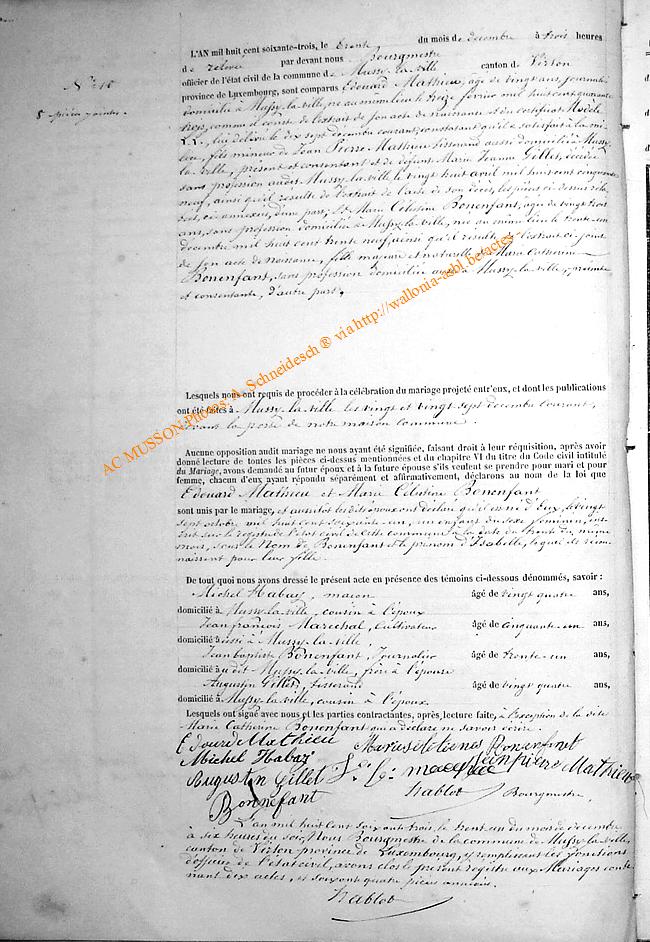 N° 10
5 pièces jointes.
L'AN mil huit cent soixante-trois, le trente du mois de décembre à trois heures
de relevée par devant nous Bourgmestre
officier de l'état civil de la commune de Mussy-la-ville canton de Virton
province de Luxembourg, sont comparus Edouard Mathieu, âgé de vingt ans, journalier
domicilié à Mussy-la-ville, né au même lieu le treize février mil huit cent quarante
trois, comme il conste de l'extrait de son acte de naissance et du certificat Modèle
L.L., lui délivré le dix sept décembre courant, constatant qu'il a satisfait à la mi-
lice, fils mineur de Jean Pierre Mathieu tisserand aussi domicilié à Mussy
la ville, présent et consentant et de défunte Marie Jeanne Gillet, décédée
sans profession audit Mussy-la-ville le vingt huit avril mil huit cent cinquante
neuf, ainsi qu'il résulte de l'extrait de l'acte de son décès, les pièces ci-dessus rela-
tées, ci annexées, d'une part; Et Marie Célestine Bonenfant, âgée de vingt trois
ans, sans profession domiciliée à Mussy-la-ville, née au même lieu le trente-un
décembre mil huit cent trente neuf, ainsi qu'il résulte de l'extrait ci joint
de son acte de naissance, fille majeure et naturelle de Marie Catherine
Bonenfant, sans profession domiciliée aussi à Mussy-la-ville, présente
et consentante, d'autre part,
Lesquels nous ont requis de procéder à la célébration du mariage projeté entr'eux, et dont les publications
ont été faites à Mussy-la-ville les vingt et vingt sept décembre courant,
devant la porte de notre maison commune.
Aucune opposition audit mariage ne nous ayant été signifiée, faisant droit à leur réquisition, après avoir
donné lecture de toutes les pièces ci-dessus mentionnées et du chapitre VI du titre du Code civil intitulé
du Mariage, avons demandé au futur époux et à la future épouse s'ils veulent se prendre pour mari et pour
femme, chacun d'eux ayant répondu séparément et affirmativement, déclarons au nom de la loi que
Edouard Mathieu et Marie Célestine Bonenfant
sont unis par le mariage, et aussitôt les dits époux ont déclaré qu'il est né d'eux, le vingt
sept octobre mil huit cent soixante-un, un enfant du sexe féminin, ins-
crit sur le registre de l'état civil de cette commune à la date du trente du même
mois, sous le Nom de Bonenfant et le prénom d'Isabelle, lequel ils recon-
naissent pour leur fille.
De tout quoi nous avons dressé le présent acte en présence des témoins ci-dessous dénommés, savoir :
Michel Habay, maçon âgé de vingt quatre ans,
domicilié à Mussy-la-ville, cousin à l'époux
Jean François Maréchal, Cultivateur âgé de cinquante-un ans,
domicilié à Mussy-la-ville,
Jean baptiste Bonenfant, Journalier âgé de trente-un ans,
domicilié audit Mussy-la-ville, frère à l'épouse
Augustin Gillet, tisserand âgé de vingt quatre ans,
domicilié à Mussy-la-ville, cousin à l'époux.
Lesquels ont signé avec nous et les parties contractantes, après lecture faite, à l'exception de la dite
Marie Catherine Bonenfant qui a déclaré ne savoir écrire.
Edourd Mathieu Bonenfant
Michel Habay Jeinpierre Mathieu
Augustin Gillet
Bonnefant Hablot Bourgmestre,
L'an mil huit cent soixante trois, le trente un du mois de décembre
à six heures du soir, Nous Bourgmestre de la commune de Mussy-la-ville,
canton de Virton province de Luxembourg, y remplissant les fonctions
d'officier de l'état civil, avons clos le présent registre aux Mariages conte-
nant dix actes, et soixante quatre pièces annexées.
Hablot
AC MUSSON Photos: A. Schneidesch ® via http://wallonia-asbl.be/actes